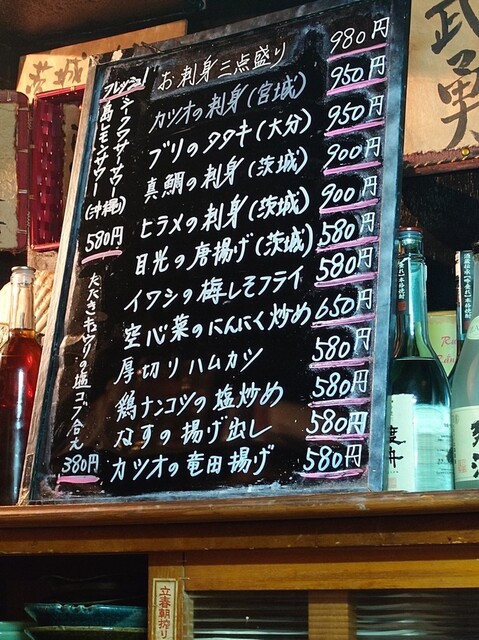 お刺身三点盛り 980円
カツオの刺身(宮城) 950円
ブリのタタキ(大分) 950円
真鯛の刺身(茨城) 900円
ヒラメの刺身(茨城) 900円
目光の唐揚げ(茨城) 580円
イワシの梅しそフライ 580円
空心菜のにんにく炒め 650円
厚切りハムカツ 580円
鶏ナンコツの塩炒め 580円
なすの揚げ出し 580円
カツオの竜田揚げ 580円
フレッシュ!
シークワサーサワー
島レモンサワー(沖縄)
580円
たたきキュウリの塩コブ合え
380円
茨城
武勇
立春朝搾り